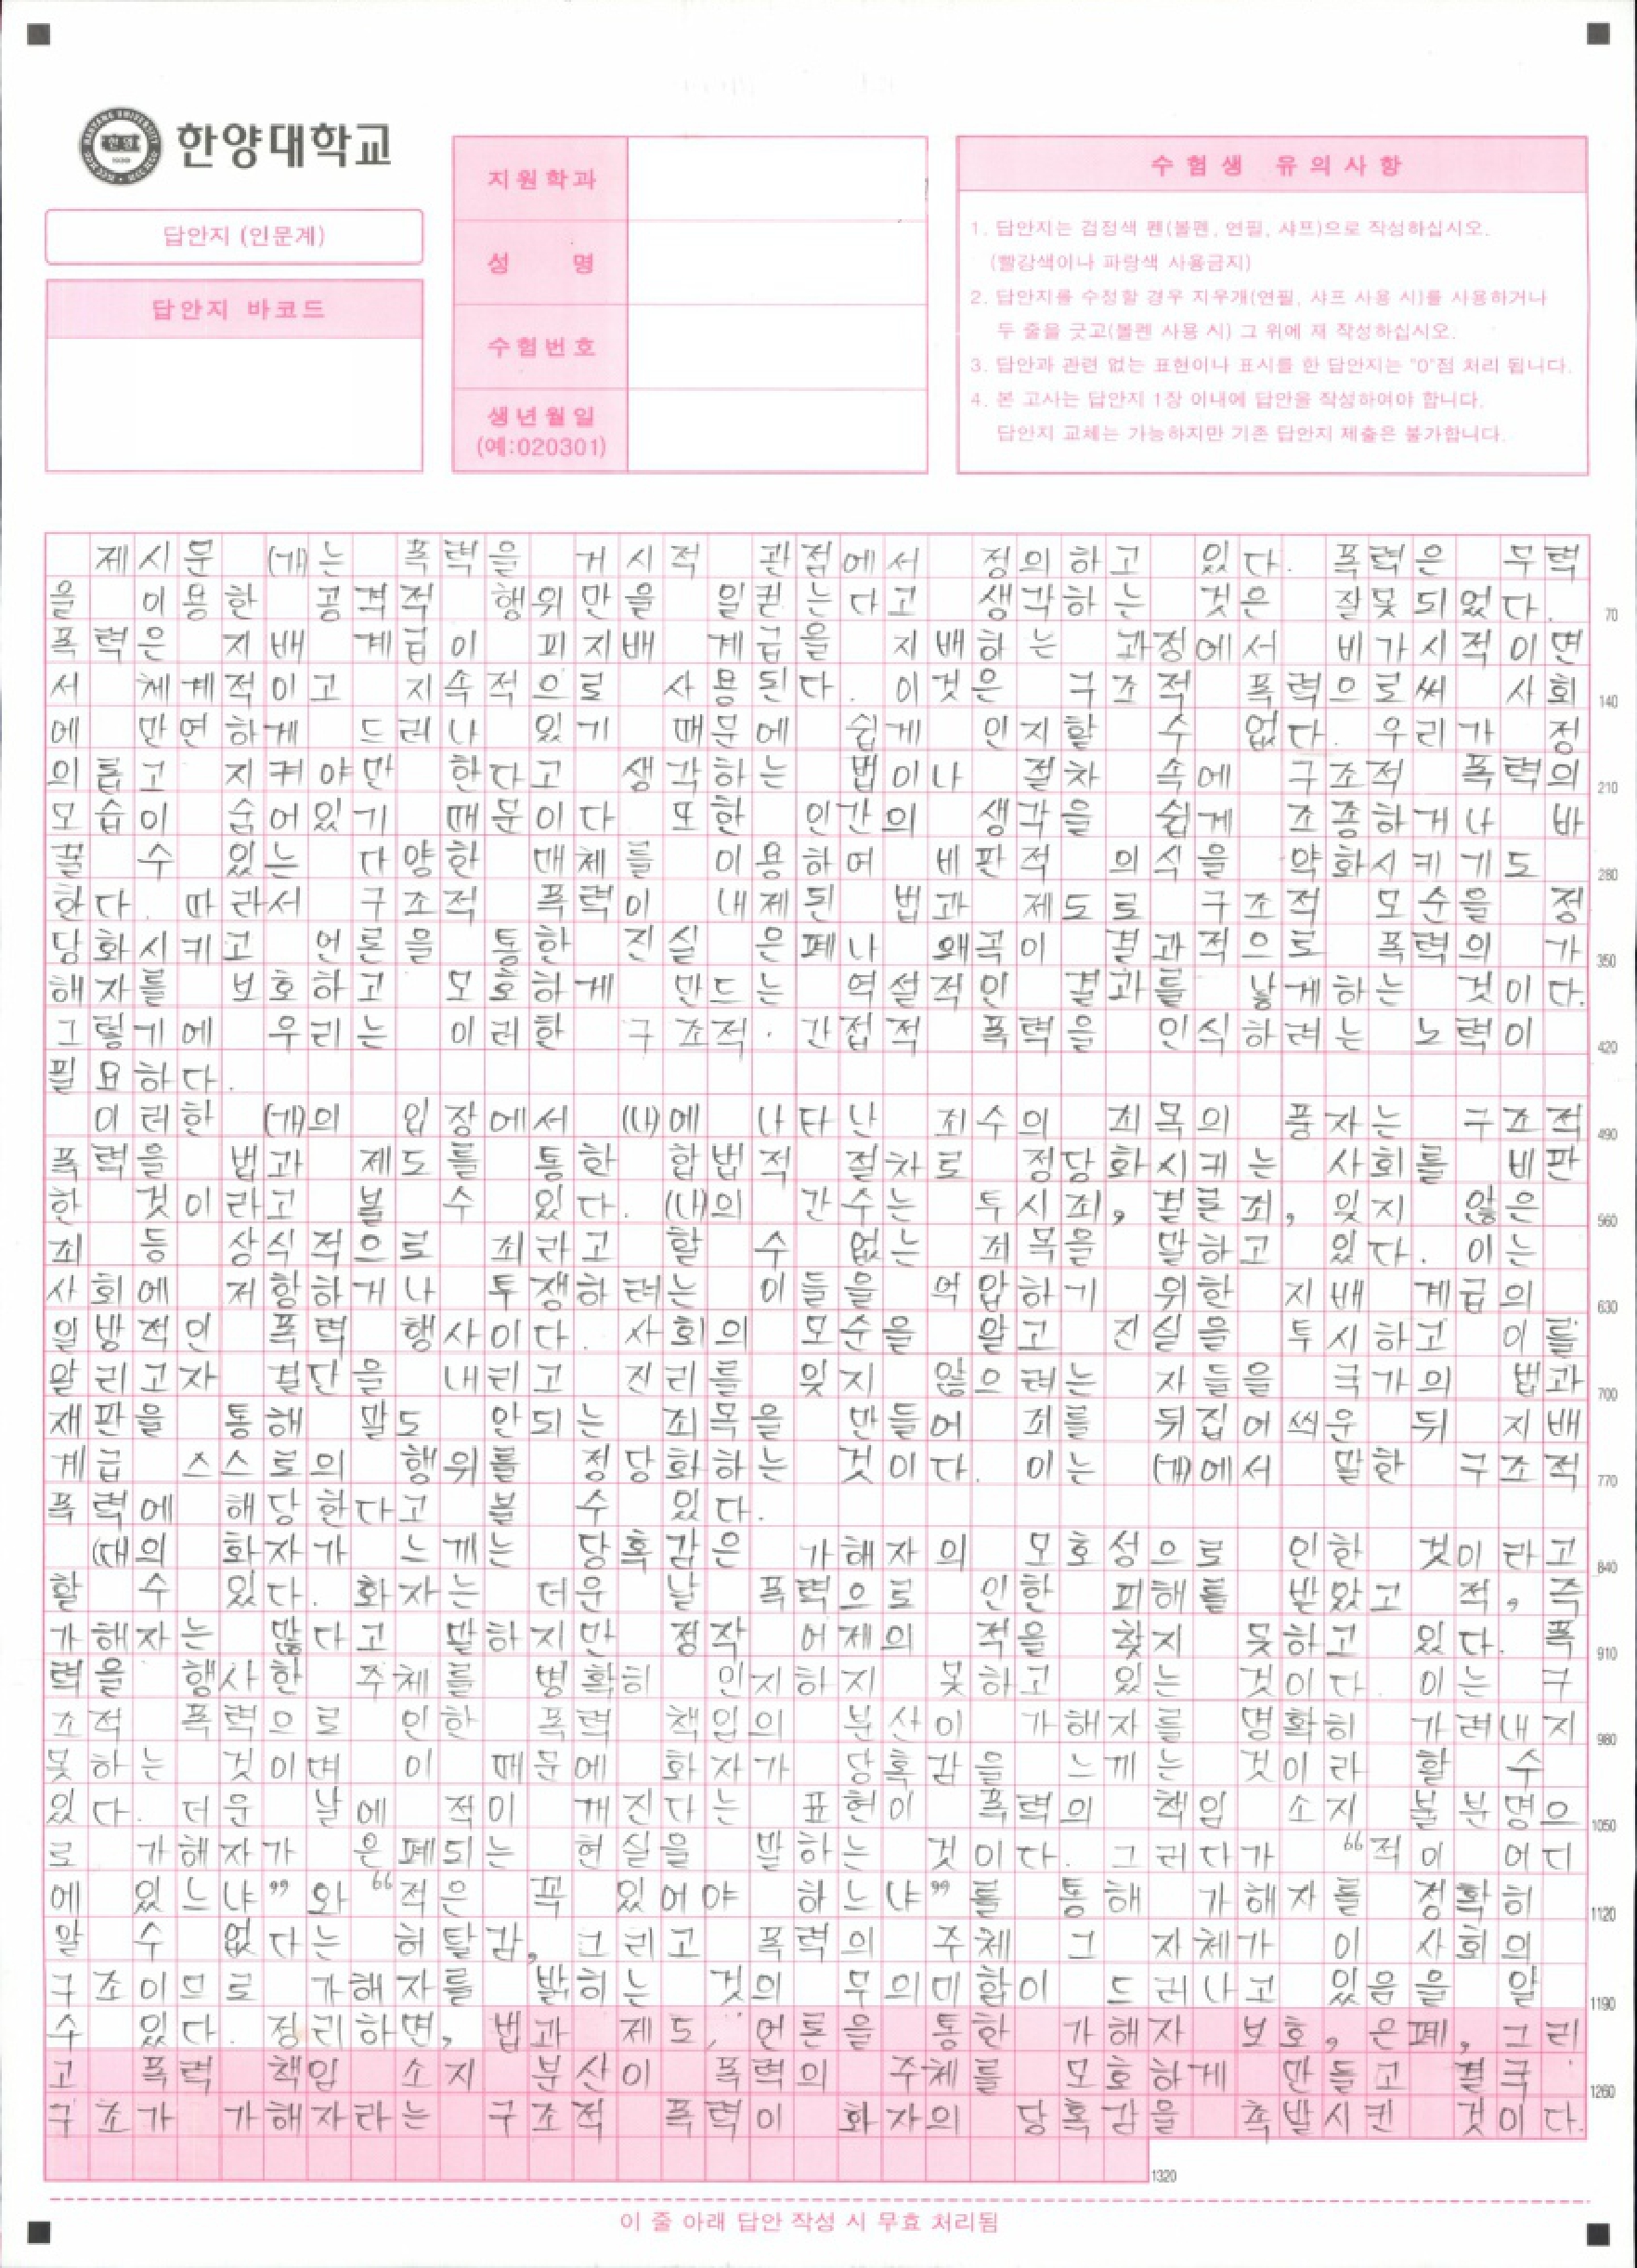 한양대학교
답안지 (인문계)
답안지 바코드
지원학과
성 명
수험번호
생년월일
(예:020301)
수험생 유의사항
1. 답안지는 검정색 펜(볼펜, 연필, 샤프)으로 작성하십시오.
(빨강색이나 파랑색 사용금지)
2. 답안지를 수정할 경우 지우개(연필, 샤프 사용 시)를 사용하거나
두 줄을 긋고(볼펜 사용 시) 그 위에 재 작성하십시오.
3. 답안과 관련 없는 표현이나 표시를 한 답안지는 "0"점 처리 됩니다.
4. 본 고사는 답안지 1장 이내에 답안을 작성하여야 합니다.
답안지 교체는 가능하지만 기존 답안지 제출은 불가합니다.
제시문 (가)는 폭력을 거시적 관점에서 정의하고 있다. 폭력은 무력
을 이용한 공격적 행위만을 일컫는다고 생각하는 것은 잘못되었다. 70
폭력은 지배 계급이 피지배 계급을 지배하는 과정에서 비가시적이면
서 체계적이고 지속적으로 사용된다. 이것은 구조적 폭력으로써 사회 140
에 만연하게 드러나 있기 때문에 쉽게 인지할 수 없다. 우리가 정
의롭고 지켜야만 한다고 생각하는 법이나 절차 속에 구조적 폭력의 210
모습이 숨어있기 때문이다 또한 인간의 생각을 쉽게 조종하거나 바
꿀 수 있는 다양한 매체를 이용하여 비판적 의식을 약화시키기도 280
한다. 따라서 구조적 폭력이 내제된 법과 제도로 구조적 모순을 정
당화시키고 언론을 통한 진실 은폐나 왜곡이 결과적으로 폭력의 가 350
해자를 보호하고 모호하게 만드는 역설적인 결과를 낳게하는 것이다.
그렇기에 우리는 이러한 구조적·간접적 폭력을 인식하려는 노력이 420
필요하다.
이러한 (가)의 입장에서 (나)에 나타난 죄수의 죄목의 풍자는 구조적 490
폭력을 법과 제도를 통한 합법적 절차로 정당화시키는 사회를 비판
한 것이라고 볼 수 있다. (나)의 간수는 투시죄, 결론죄, 잊지 않은 560
죄 등 상식적으로 죄라고 할 수 없는 죄목을 말하고 있다. 이는
사회에 저항하거나 투쟁하려는 이들을 억압하기 위한 지배 계급의 630
일방적인 폭력 행사이다. 사회의 모순을 알고 진실을 투시하고 이를
알리고자 결단을 내리고 진리를 잊지 않으려는 자들을 국가의 법과 700
재판을 통해 말도 안되는 죄목을 만들어 죄를 뒤집어씌운 뒤 지배
계급 스스로의 행위를 정당화하는 것이다. 이는 (가)에서 말한 구조적 770
폭력에 해당한다고 볼 수 있다.
(다)의 화자가 느끼는 당혹감은 가해자의 모호성으로 인한 것이라고 840
할 수 있다. 화자는 더운 날 폭력으로 인한 피해를 받았고 적, 즉
가해자는 많다고 말하지만 정작 어제의 적을 찾지 못하고 있다. 폭 910
력을 행사한 주체를 명확히 인지하지 못하고 있는 것이다. 이는 구
조적 폭력으로 인한 폭력 책임의 분산이 가해자를 명확히 가려내지 980
못하는 것이며 이 때문에 화자가 당혹감을 느끼는 것이라 할 수
있다. 더운 날에 적이 깨진다는 표현이 폭력의 책임 소지 불분명으 1050
로 가해자가 은폐되는 현실을 말하는 것이다. 그러다가 “적이 어디
에 있느냐”와 “적은 꼭 있어야 하느냐”를 통해 가해자를 정확히 1120
알 수 없다는 허탈감, 그리고 폭력의 주체 그 자체가 이 사회의
구조이므로 가해자를 밝히는 것의 무의미함이 드러나고 있음을 알 1190
수 있다. 정리하면, 법과 제도, 언론을 통한 가해자 보호, 은폐, 그리
고 폭력 책임 소지 분산이 폭력의 주체를 모호하게 만들고 결국 1260
구조가 가해자라는 구조적 폭력이 화자의 당혹감을 촉발시킨 것이다.
1320
이 줄 아래 답안 작성 시 무효 처리됨